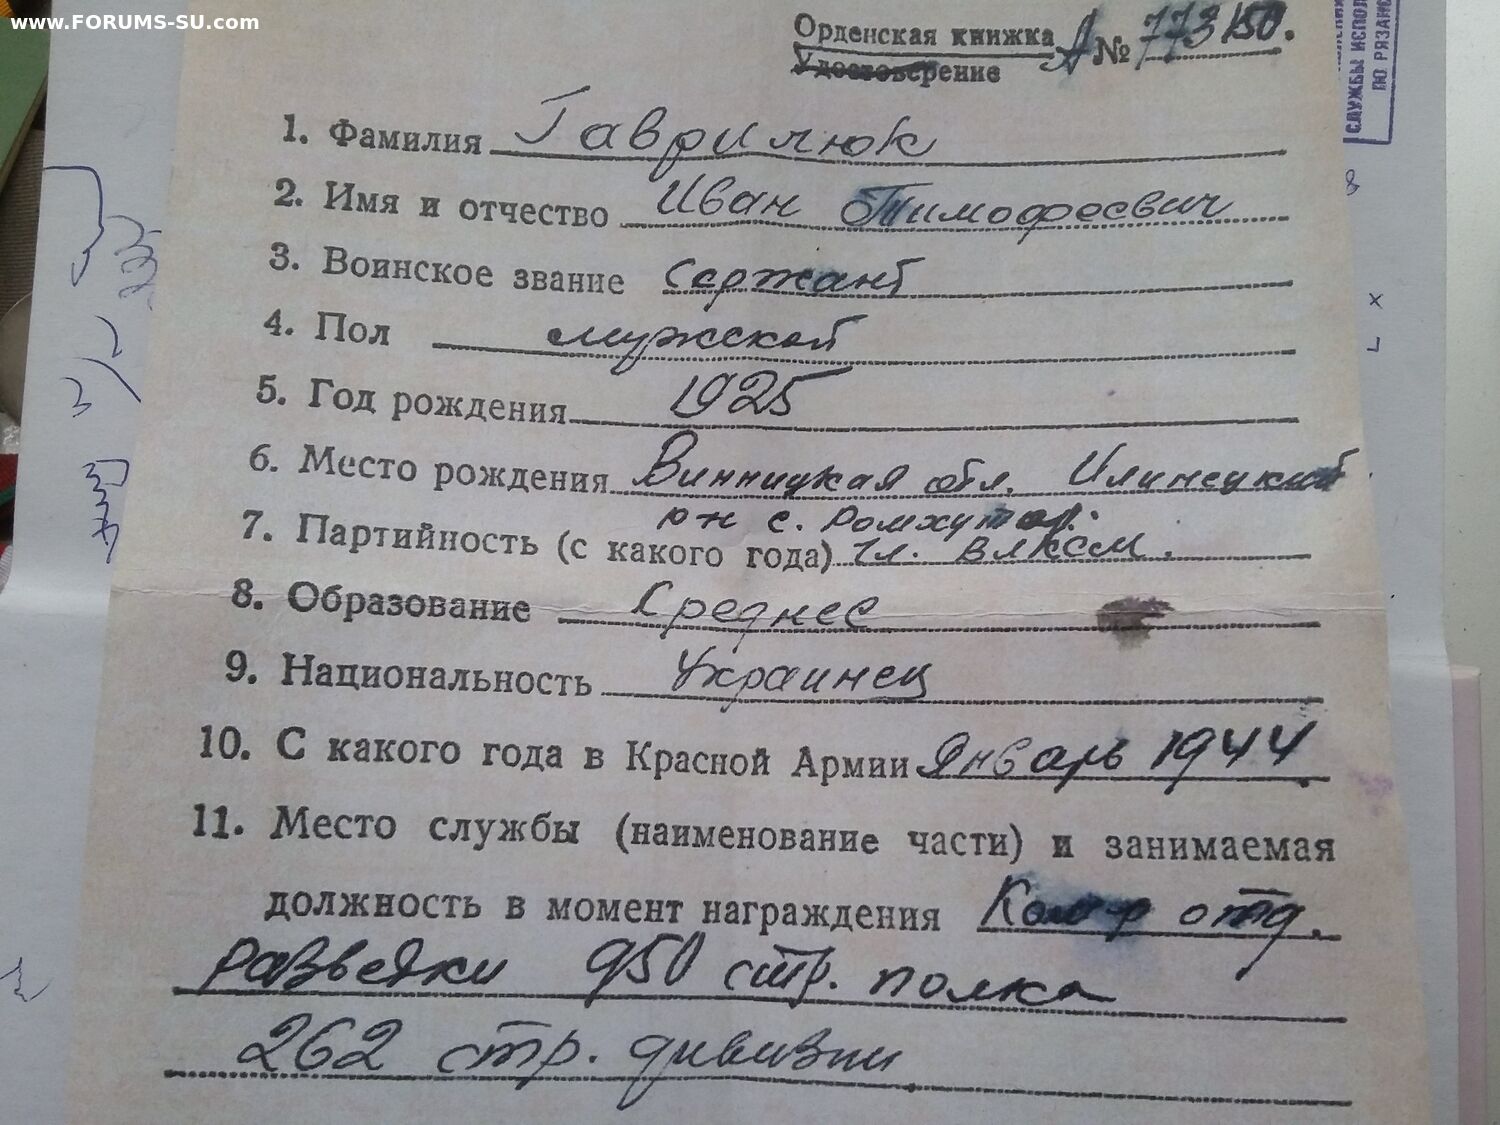 www.FORUMS-SU.com
Орденская книжка А № 773150.
Удостоверение
СЛУЖБЫ ИСПОЛ
ПО РЯЗАНС
1. Фамилия Гаврилюк
2. Имя и отчество Иван Тимофеевич
3. Воинское звание Сержант
4. Пол мужской
5. Год рождения 1925
6. Место рождения Винницкая обл. Илинецкий
р-н с.
7. Партийность (с какого года) чл. ВЛКСМ.
8. Образование Среднее
9. Национальность Украинец
10. С какого года в Красной Армии Январь 1944
11. Место службы (наименование части) и занимаемая
должность в момент награждения Ком-р отд.
разведки 950 стр. полка
262 стр. дивизии